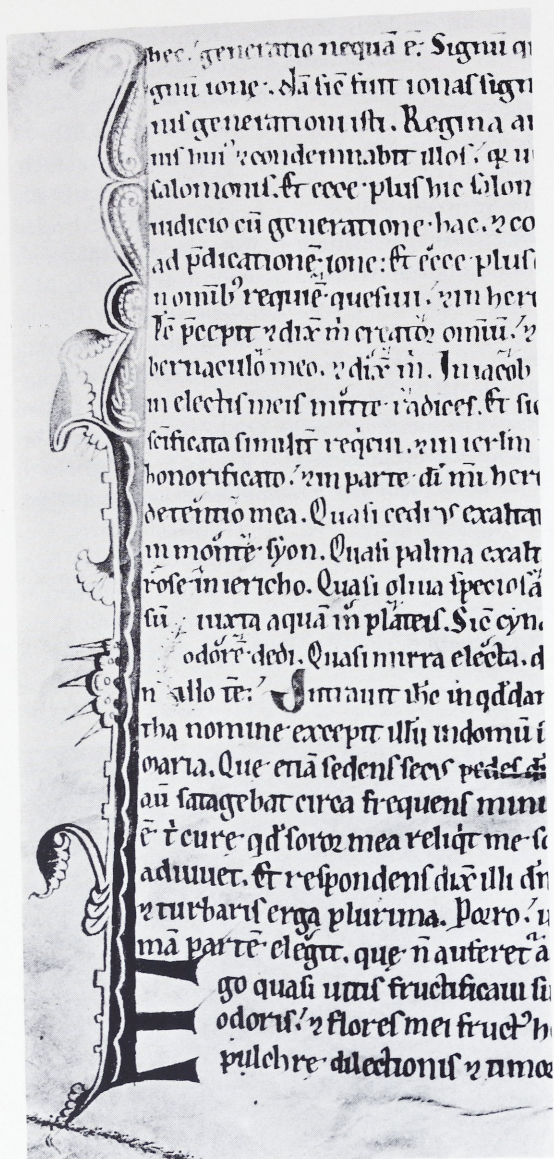 hec generatio nequā ē. Signū q
gnū ione. Nā sic fuit ionas sign
nis generationi isti. Regina au
nis hui᷒ ⁊ condemnabit illos
salomonis. Et ecce plus hic salon
iudicio cū generatione hac. ⁊ co
ad p̄dicationē ione: Et ecce plus
n omīb᷒ requiē quesiui. ⁊ in her
p̄cepit ⁊ dix̄ m̄ creator omiū. ⁊
bernaculo meo. ⁊ dix̄ m̄. In iacob
in electis meis mitte radices. Et sic
sc̄ificata similit̄ reqeui. ⁊ in ierl̄m
honorificato. ⁊ in parte dī mī here
detentio mea. Quasi cedrus exalta
in monte syon. Quasi palma exalt
rose in iericho. Quasi oliua speciosa
sū iuxta aquā in plateis. Sic cyn
odorē dedi. Quasi mirra electa. d
Intrauit ihc in qddā
tha nomine excepit illū in domū
maria. Que etiā sedens secus pedes
aū satagebat circa frequens mini
ē t̄ cure qd̄ soror mea reliqt me
adiuuet. Et respondens dix̄ illi dn̄
⁊ turbaris erga plurima. Porro
mā partē elegit. que n̄ auferet a
Ego quasi uitis fructificaui su
odoris. ⁊ flores mei fruct᷒ h
pulchre dilectionis ⁊ timo